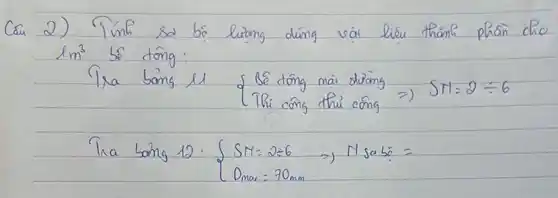 Câu 2) Tính sơ bộ lượng dùng vật liệu thành phần cho
1m³ bê tông:
Tra bảng 11 { Bê tông mái đường
Thi công thủ công => SN = 2 ÷ 6
Tra bảng 12. { SN = 2÷6 => N sơ bộ =
Dmax = 70mm